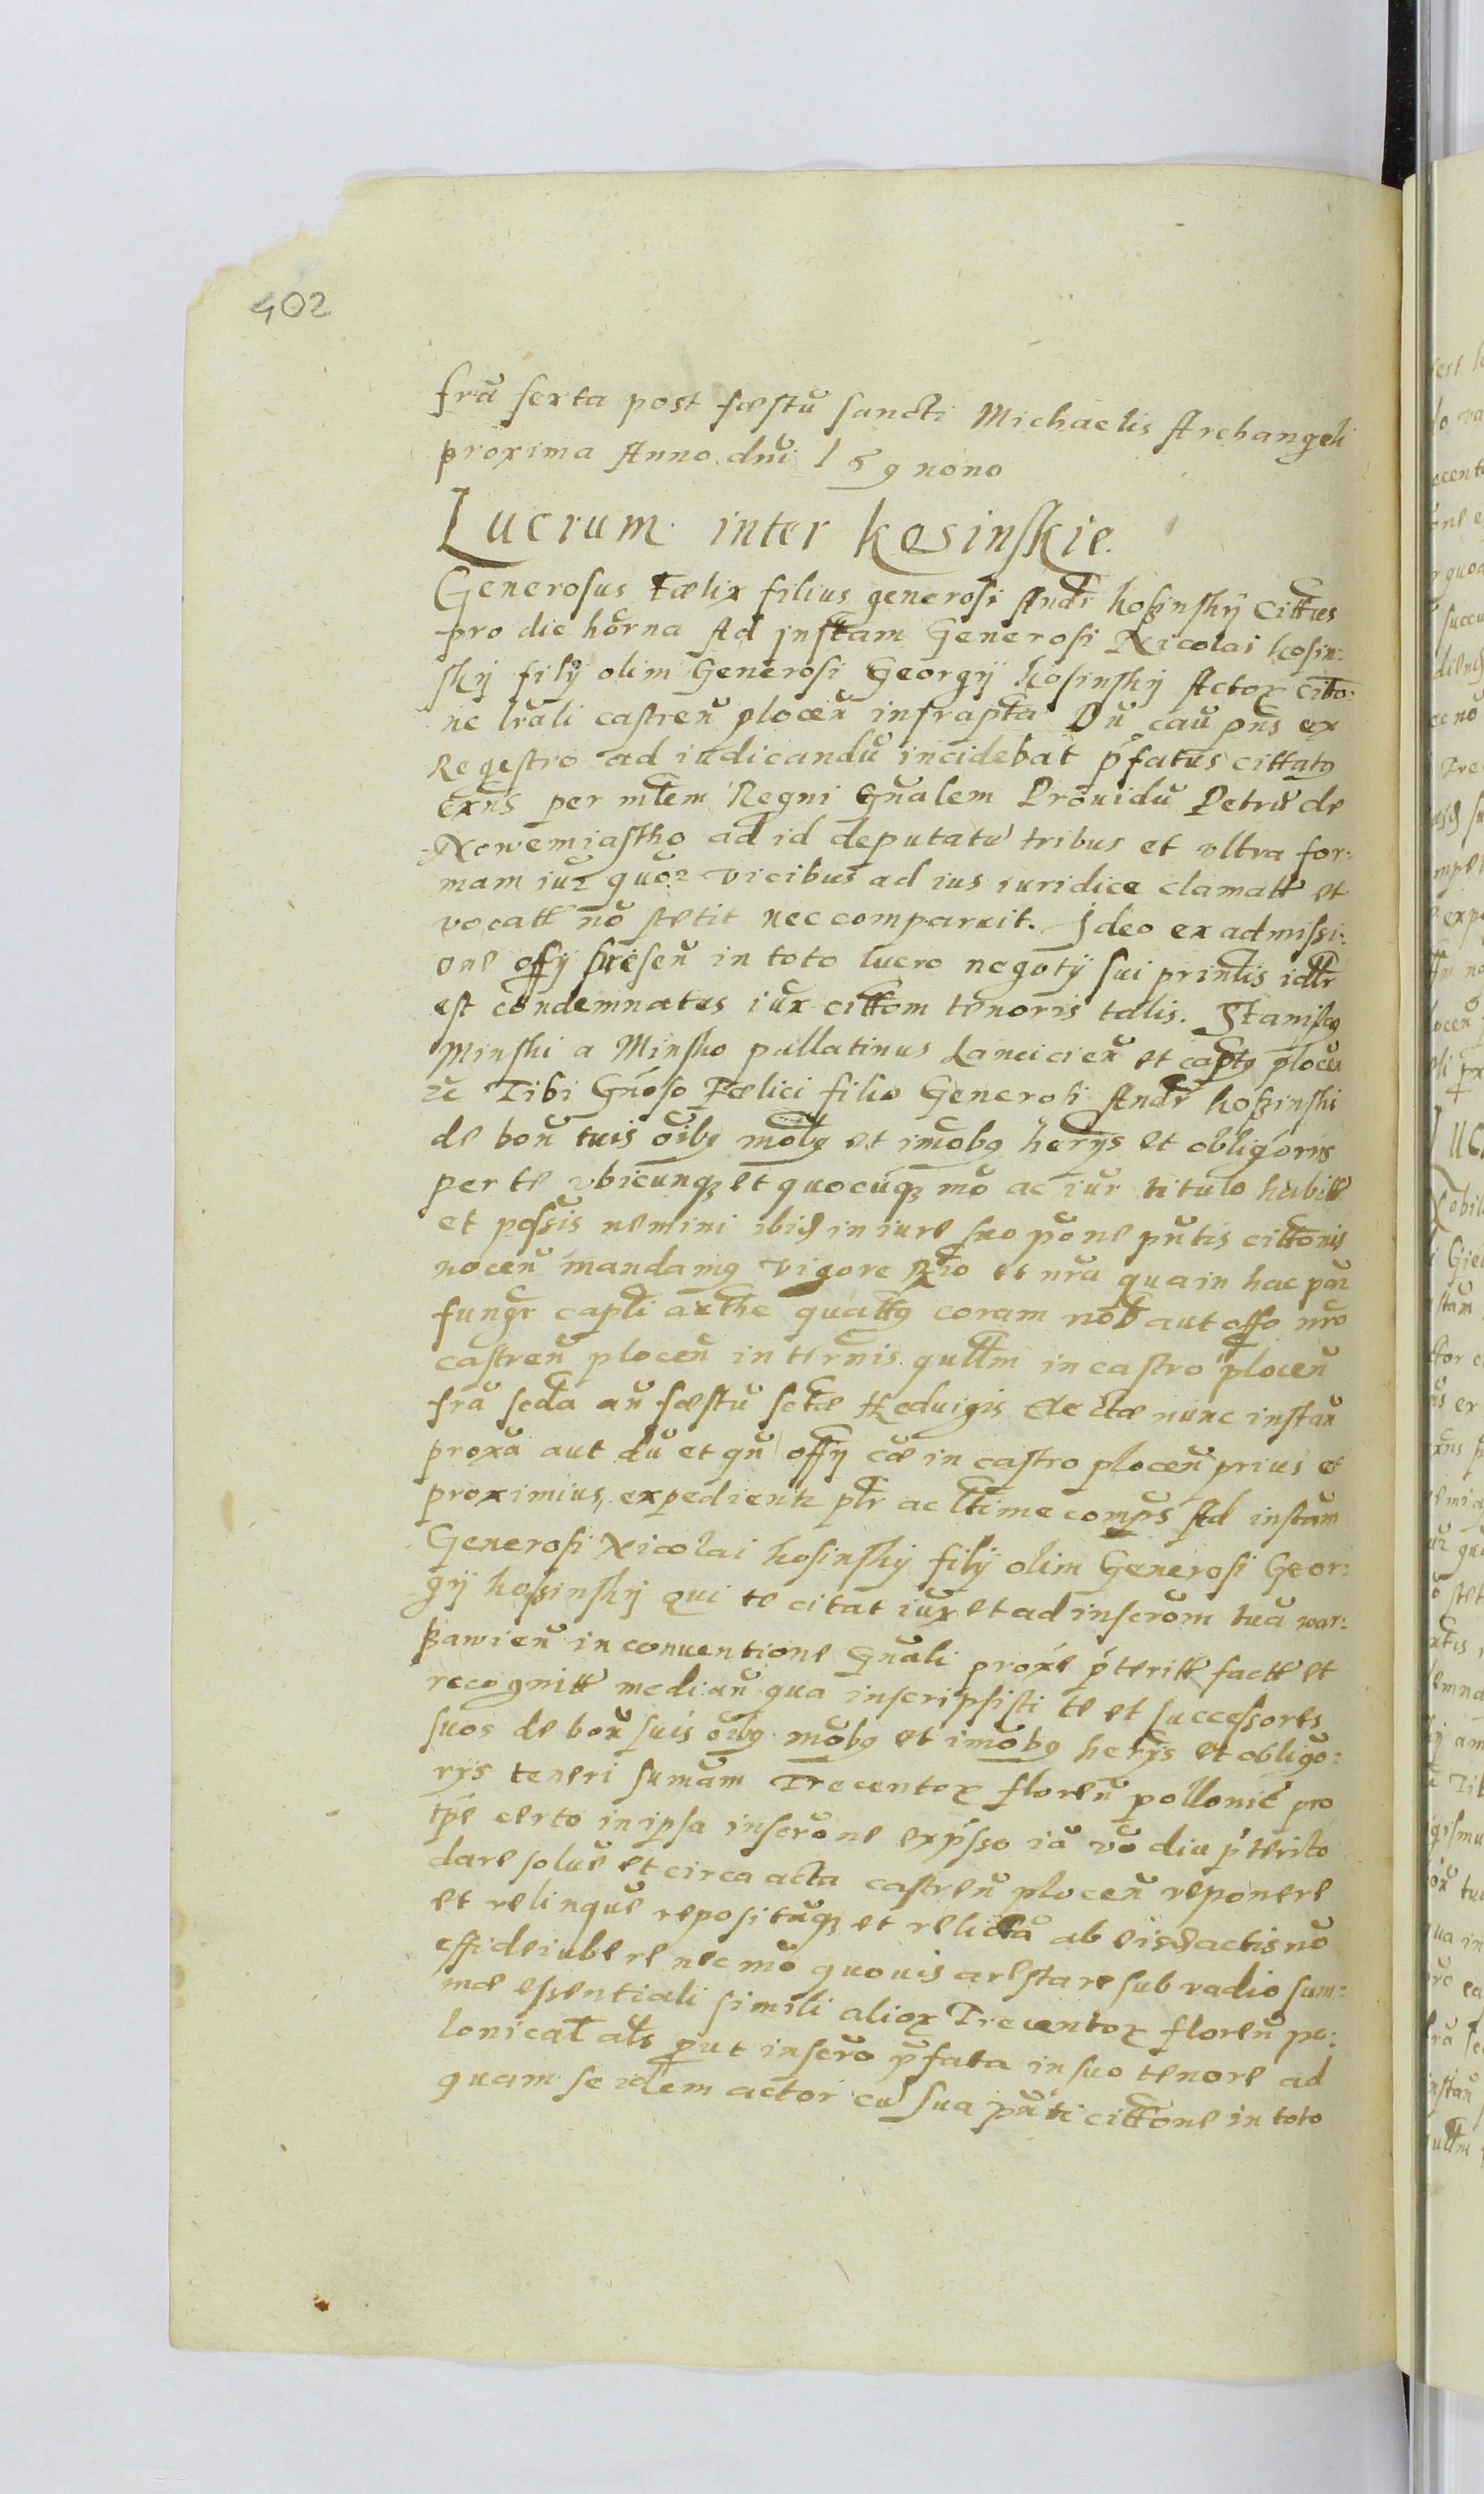 402
fra sexta post fæstu sancti Michaelis Archangeli
proxima Anno dni 1 5 9 nono
Lucrum inter kosinskie.
Generosus Fælix filius generosi Andr koßinskÿ CitTus
pro die horna Ad instam Generosi Nicolai kosin:
skÿ filÿ olim Generosi Georgÿ kosinskÿ Actor cito:
ne lrali castren plocen infrapta Dn cau pns ex
Regestro ad iudicandu incidebat pfatus cittatq
Exns per mtem Regni Gnalem Prouidu Petru de
Nowemiastho ad id deputatu tribus et vltra for:
mam iur quor vicibus ad ius iuridice clamatt et
vocatt no stetit nec comparuit. Ideo ex admissi:
one offÿ presen in toto lucro negotÿ sui printis idtr
est condemnatus iux cittom tenoris talis. Stanisq
Minski a Minsko pallatinus Lancicien et captq plocen
rc Tibi Gnoso Fælici filio Generosi Andr koßinski
de bon tuis oibq mobq et imobq herÿs et obligorÿs
per te vbicunqz et quocuqz mo ac iur titulo habitt
et possis nemini ibid in iure suo pone pntis cittonis
nocen mandamq vigore Rio et nra qua in hac par
fungr captli authe quattq coram nob aut offo nro
castren plocen in ternis quttm in castro plocen
fra scda an fæstu sctæ Heduigis Electæ nunc instan
proxa aut du et qn offÿ cæ in castro plocen prius et
proximius, expedientr plr ac ltime comps Ad instam
Generosi Nicolai kosinskÿ filÿ olim Generosi Geor:
gÿ koßinskÿ qui te citat iux et ad inscrom tua war:
ßawien in conuentione Gnali proxe pteritt factt et
recognitt median qua inscripsisti te et successores
suos de bon suis oibq mobq et imobq herÿs et obligo:
rÿs teneri sumam Trecentor floren pollonic pro
tpe certo in ipsa inscrone expsso ia vo diu pterito
dare solue et circa acta castren plocen reponere
et relinque repositaqz et relicta ab eisd actis no
effideiubere nec mo quouis arestare sub vadio sum:
mæ essentiali simili alior Trecentor floren po:
lonical als put inscro pfata in suo tenore ad
quam se idem actor cu sua pnti cittone in toto